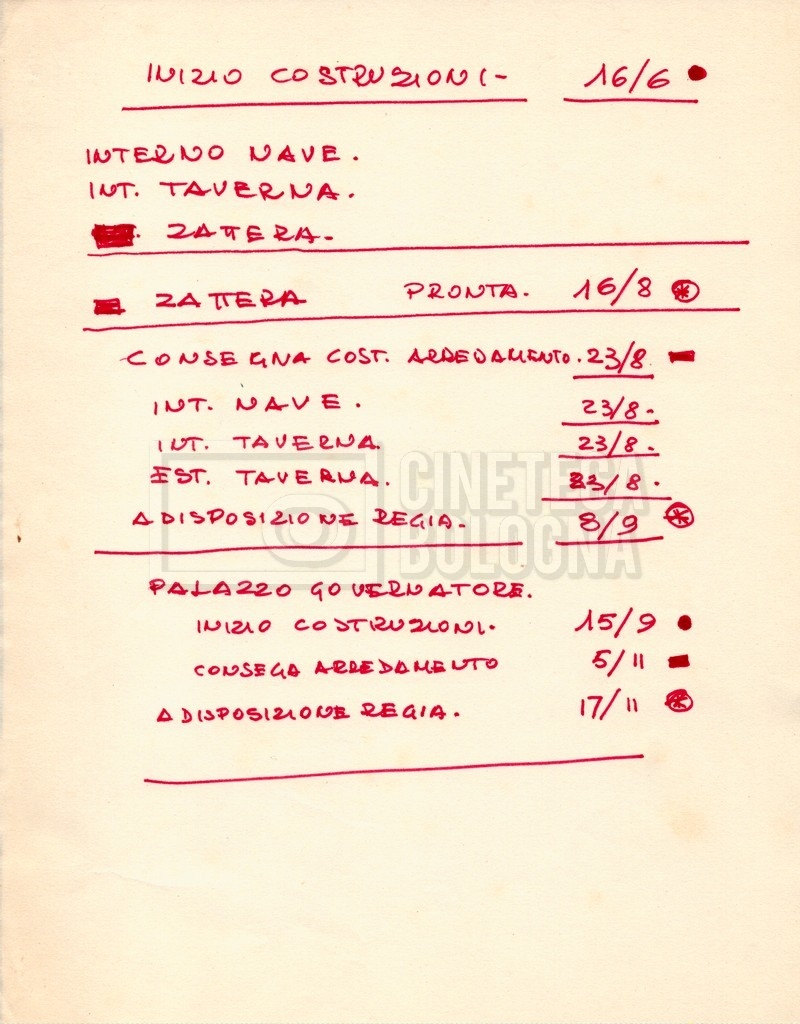 INIZIO COSTRUZIONI- 16/6
INTERNO NAVE.
INT. TAVERNA.
ZATTERA.
ZATTERA PRONTA. 16/8
CONSEGNA COST. ARREDAMENTO. 23/8
INT. NAVE. 23/8.
INT. TAVERNA. 23/8.
EST. TAVERNA. 23/8.
A DISPOSIZIONE REGIA. 8/9
PALAZZO GOVERNATORE.
INIZIO COSTRUZIONI. 15/9
CONSEGA ARREDAMENTO 5/11
A DISPOSIZIONE REGIA. 17/11
CINETECA
BOLOGNA